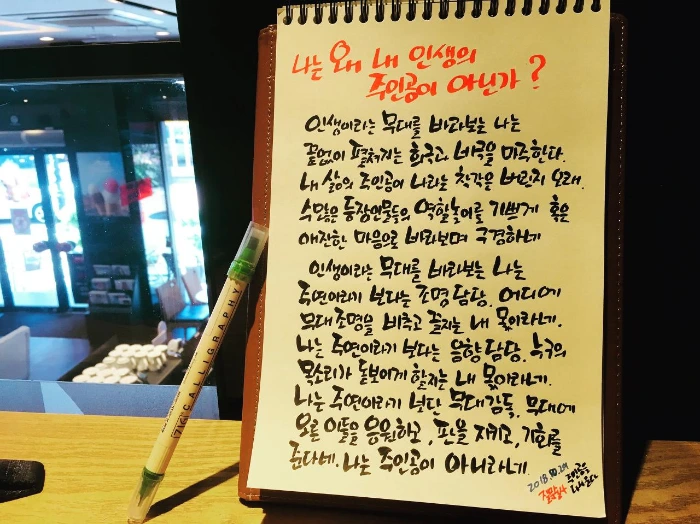 나는 왜 내 인생의
주인공이 아닌가?
인생이라는 무대를 바라보는 나는
끝없이 펼쳐지는 희극과 비극을 마주한다.
내 삶의 주인공이 나라는 착각은 버린지 오래.
수많은 등장인물들의 역할놀이를 기쁘게 혹은
애잔한 마음으로 바라보며 구경하네
인생이라는 무대를 바라보는 나는
주연이라기 보다는 조명 담당. 어디에
무대조명을 비추고 끌지는 내 몫이라네.
나는 주연이라기 보다는 음향 담당. 누구의
목소리가 돋보이게 할지는 내 몫이라네.
나는 주연이라기 보단 무대감독, 무대에
오를 이들을 응원하고, 판을 키우고, 기회를
준다네. 나는 주인공이 아니라네.
2018.10.29
주인공은
ZIG CALLIGRAPHY